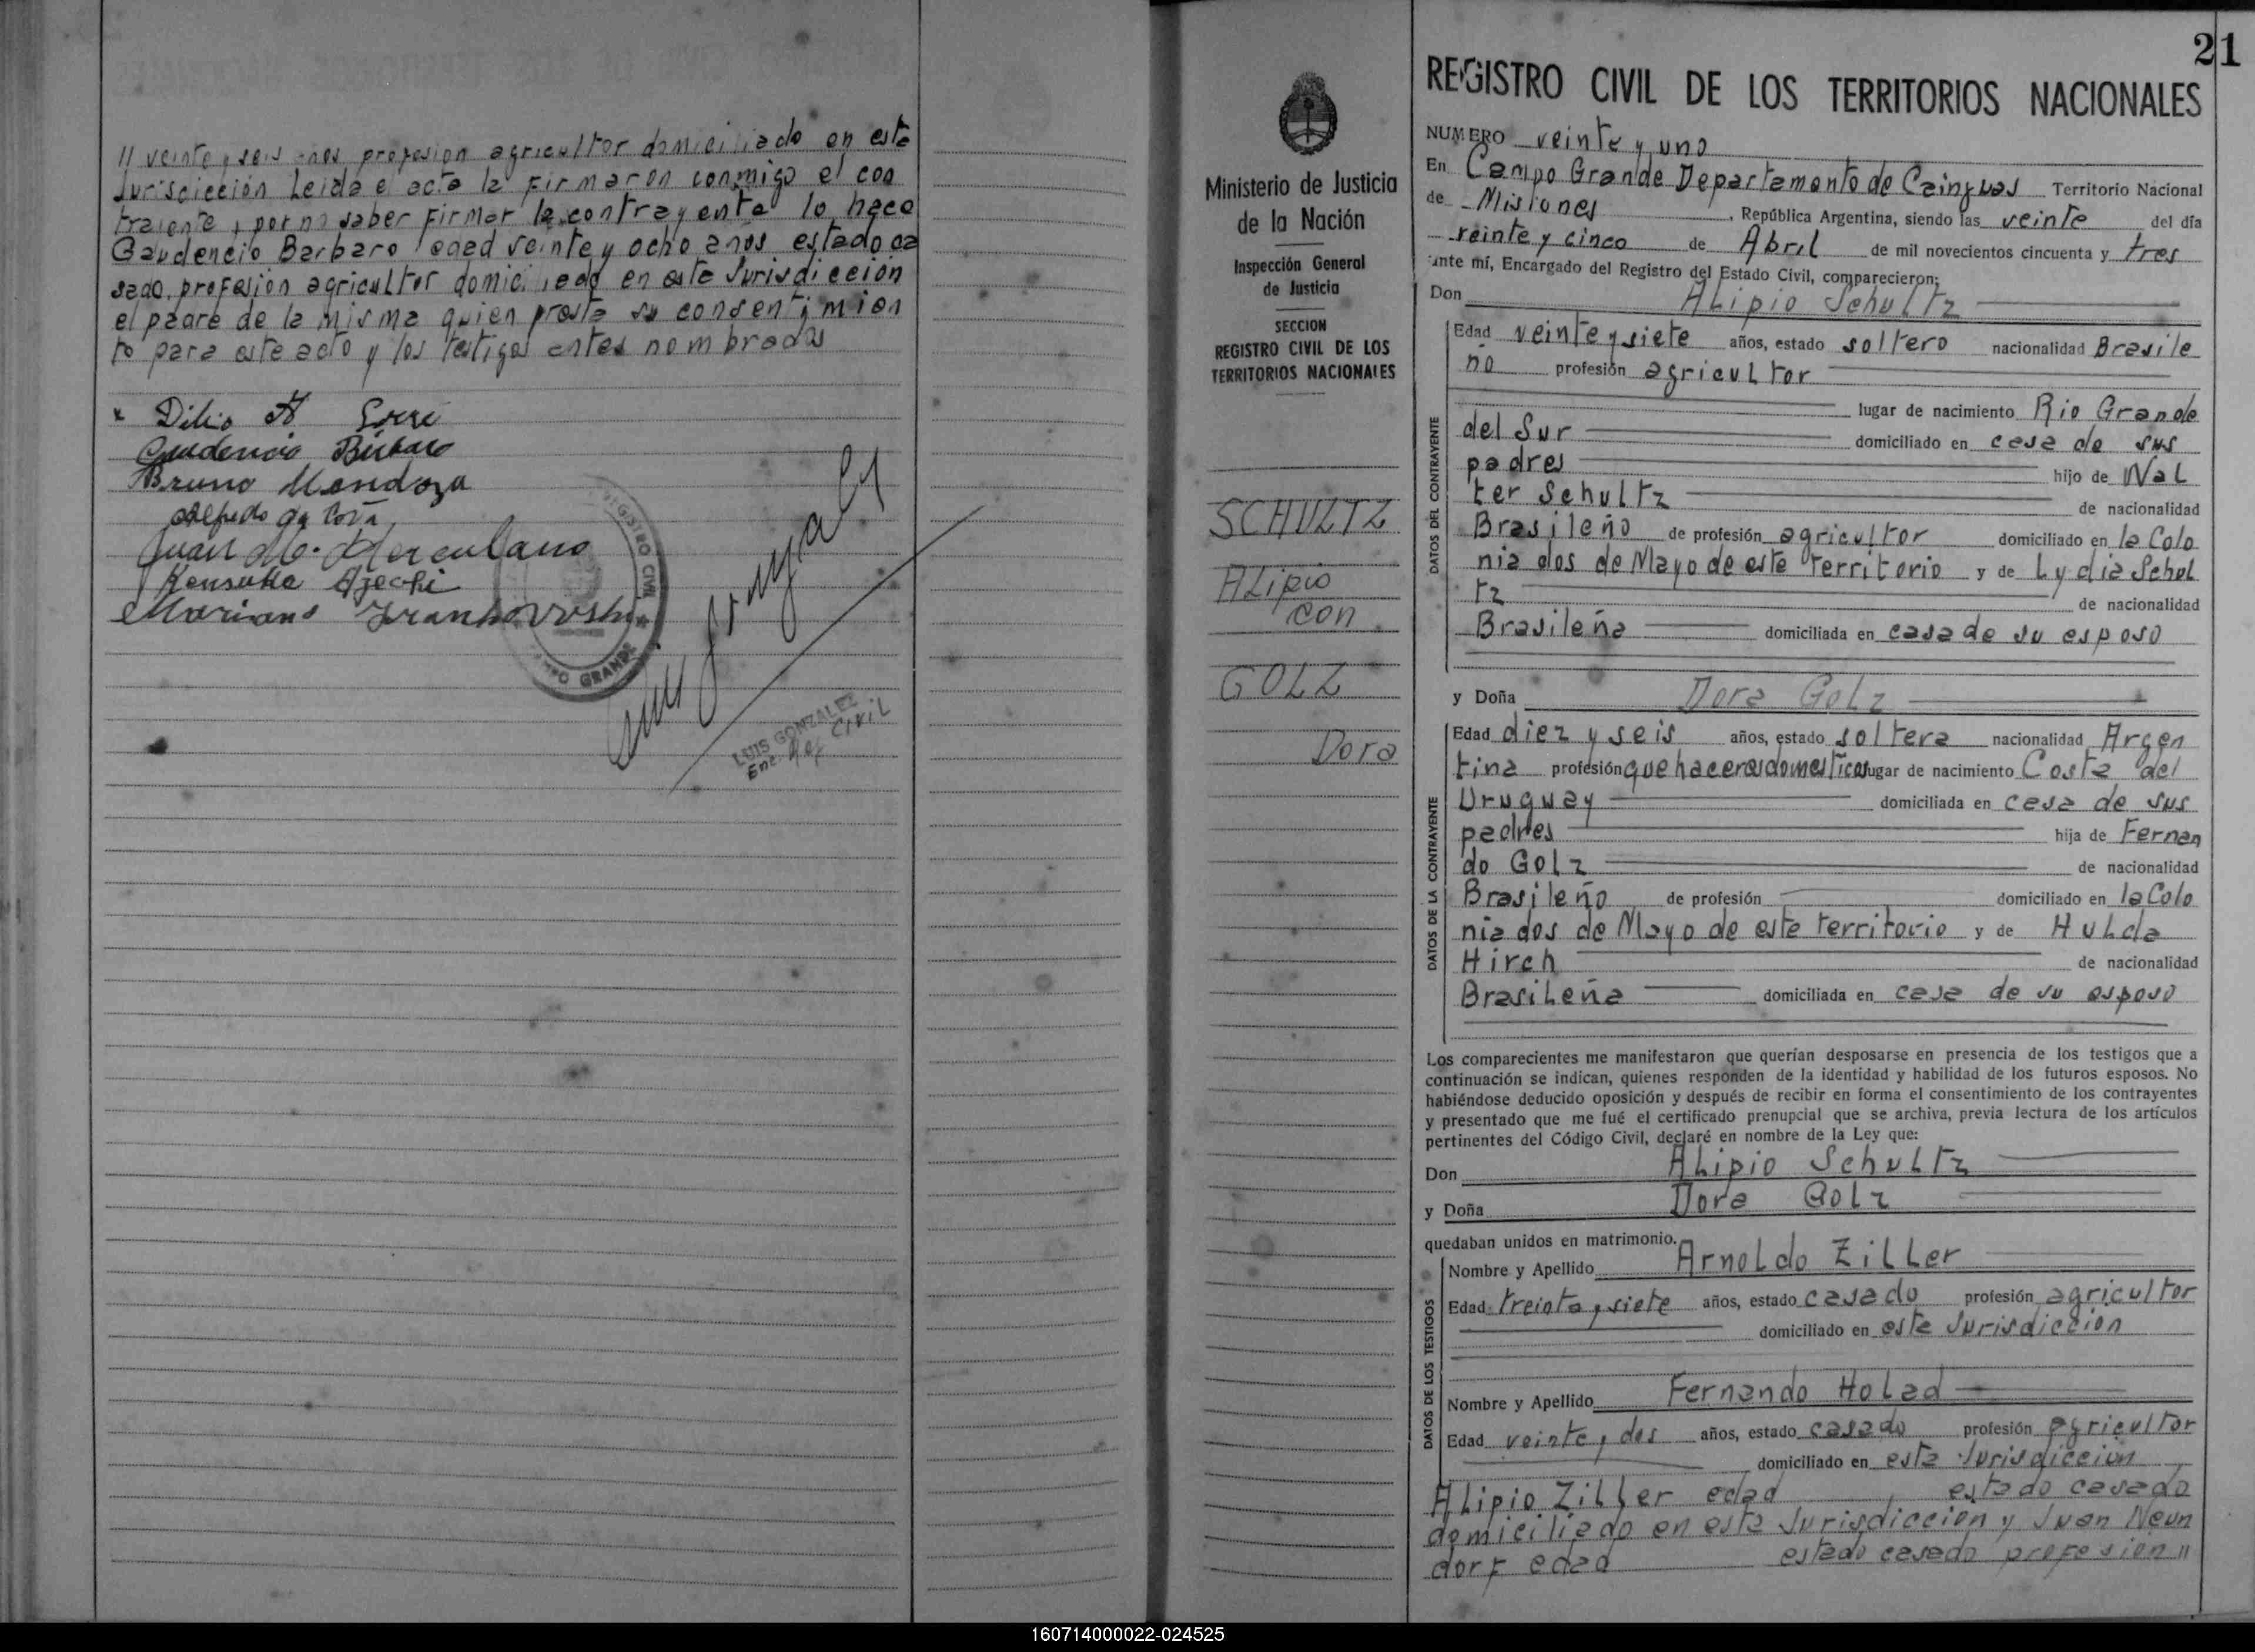 " veinte y seis años profesion agricultor domiciliado en esta
Jurisdicción Leida el acta la Firmaron conmigo el con
trayente y por no saber Firmar la contrayente lo hace
Gaudencio Barbaro edad veinte y ocho años estado ca
sado, profesión agricultor domiciliado en esta Jurisdicción
el padre de la misma quien presta su consentimien
to para este acto y los testigos antes nombrados
x Dilio A
Gaudencio Bárbaro
Bruno Mendoza
Alfredo da
Juan M. Herculano
Kensuke Azechi
Mariano
REGISTRO CIVIL
CAMPO GRANDE
Luis Gonzalez
LUIS GONZALEZ
Enc. Reg. Civil
21
Ministerio de Justicia
de la Nación
Inspección General
de Justicia
SECCION
REGISTRO CIVIL DE LOS
TERRITORIOS NACIONALES
SCHULTZ
ALipio
con
GOLZ
Dora
REGISTRO CIVIL DE LOS TERRITORIOS NACIONALES
NUMERO veinte y uno
En Campo Grande Departamento de Cainguas Territorio Nacional
de Misiones, República Argentina, siendo las veinte del día
veinte y cinco de Abril de mil novecientos cincuenta y tres
ante mí, Encargado del Registro del Estado Civil, comparecieron:
Don ALipio SchuLtz
DATOS DEL CONTRAYENTE
Edad veinte y siete años, estado soltero nacionalidad Brasile
ño profesión agricuLtor
lugar de nacimiento Rio Grande
del Sur domiciliado en casa de sus
padres hijo de WaL
ter SchuLtz de nacionalidad
Brasileño de profesión agricultor domiciliado en la Colo
nia dos de Mayo de este Territorio y de Lydia Schul
tz de nacionalidad
Brasileña domiciliada en casa de su esposo
y Doña Dora GoLz
DATOS DE LA CONTRAYENTE
Edad diez y seis años, estado soltera nacionalidad Argen
tina profesión quehaceres domesticos lugar de nacimiento Costa del
Uruguay domiciliada en casa de sus
padres hija de Fernan
do Golz de nacionalidad
Brasileño de profesión domiciliado en la Colo
nia dos de Mayo de este territorio y de HuLda
Hirch de nacionalidad
BrasiLeña domiciliada en casa de su esposo
Los comparecientes me manifestaron que querían desposarse en presencia de los testigos que a
continuación se indican, quienes responden de la identidad y habilidad de los futuros esposos. No
habiéndose deducido oposición y después de recibir en forma el consentimiento de los contrayentes
y presentado que me fué el certificado prenupcial que se archiva, previa lectura de los artículos
pertinentes del Código Civil, declaré en nombre de la Ley que:
Don ALipio SchuLtz
y Doña Dora GoLz
quedaban unidos en matrimonio.
DATOS DE LOS TESTIGOS
Nombre y Apellido ArnoLdo ZiLLer
Edad treinta y siete años, estado casado profesión agricultor
domiciliado en esta Jurisdicción
Nombre y Apellido Fernando HoLad
Edad veinte y dos años, estado casado profesión agricultor
domiciliado en esta Jurisdicción
ALipio ZiLLer edad estado casado
domiciliado en esta Jurisdicción y Juan Neun
dorf edad estado casado profesión "
160714000022-024525